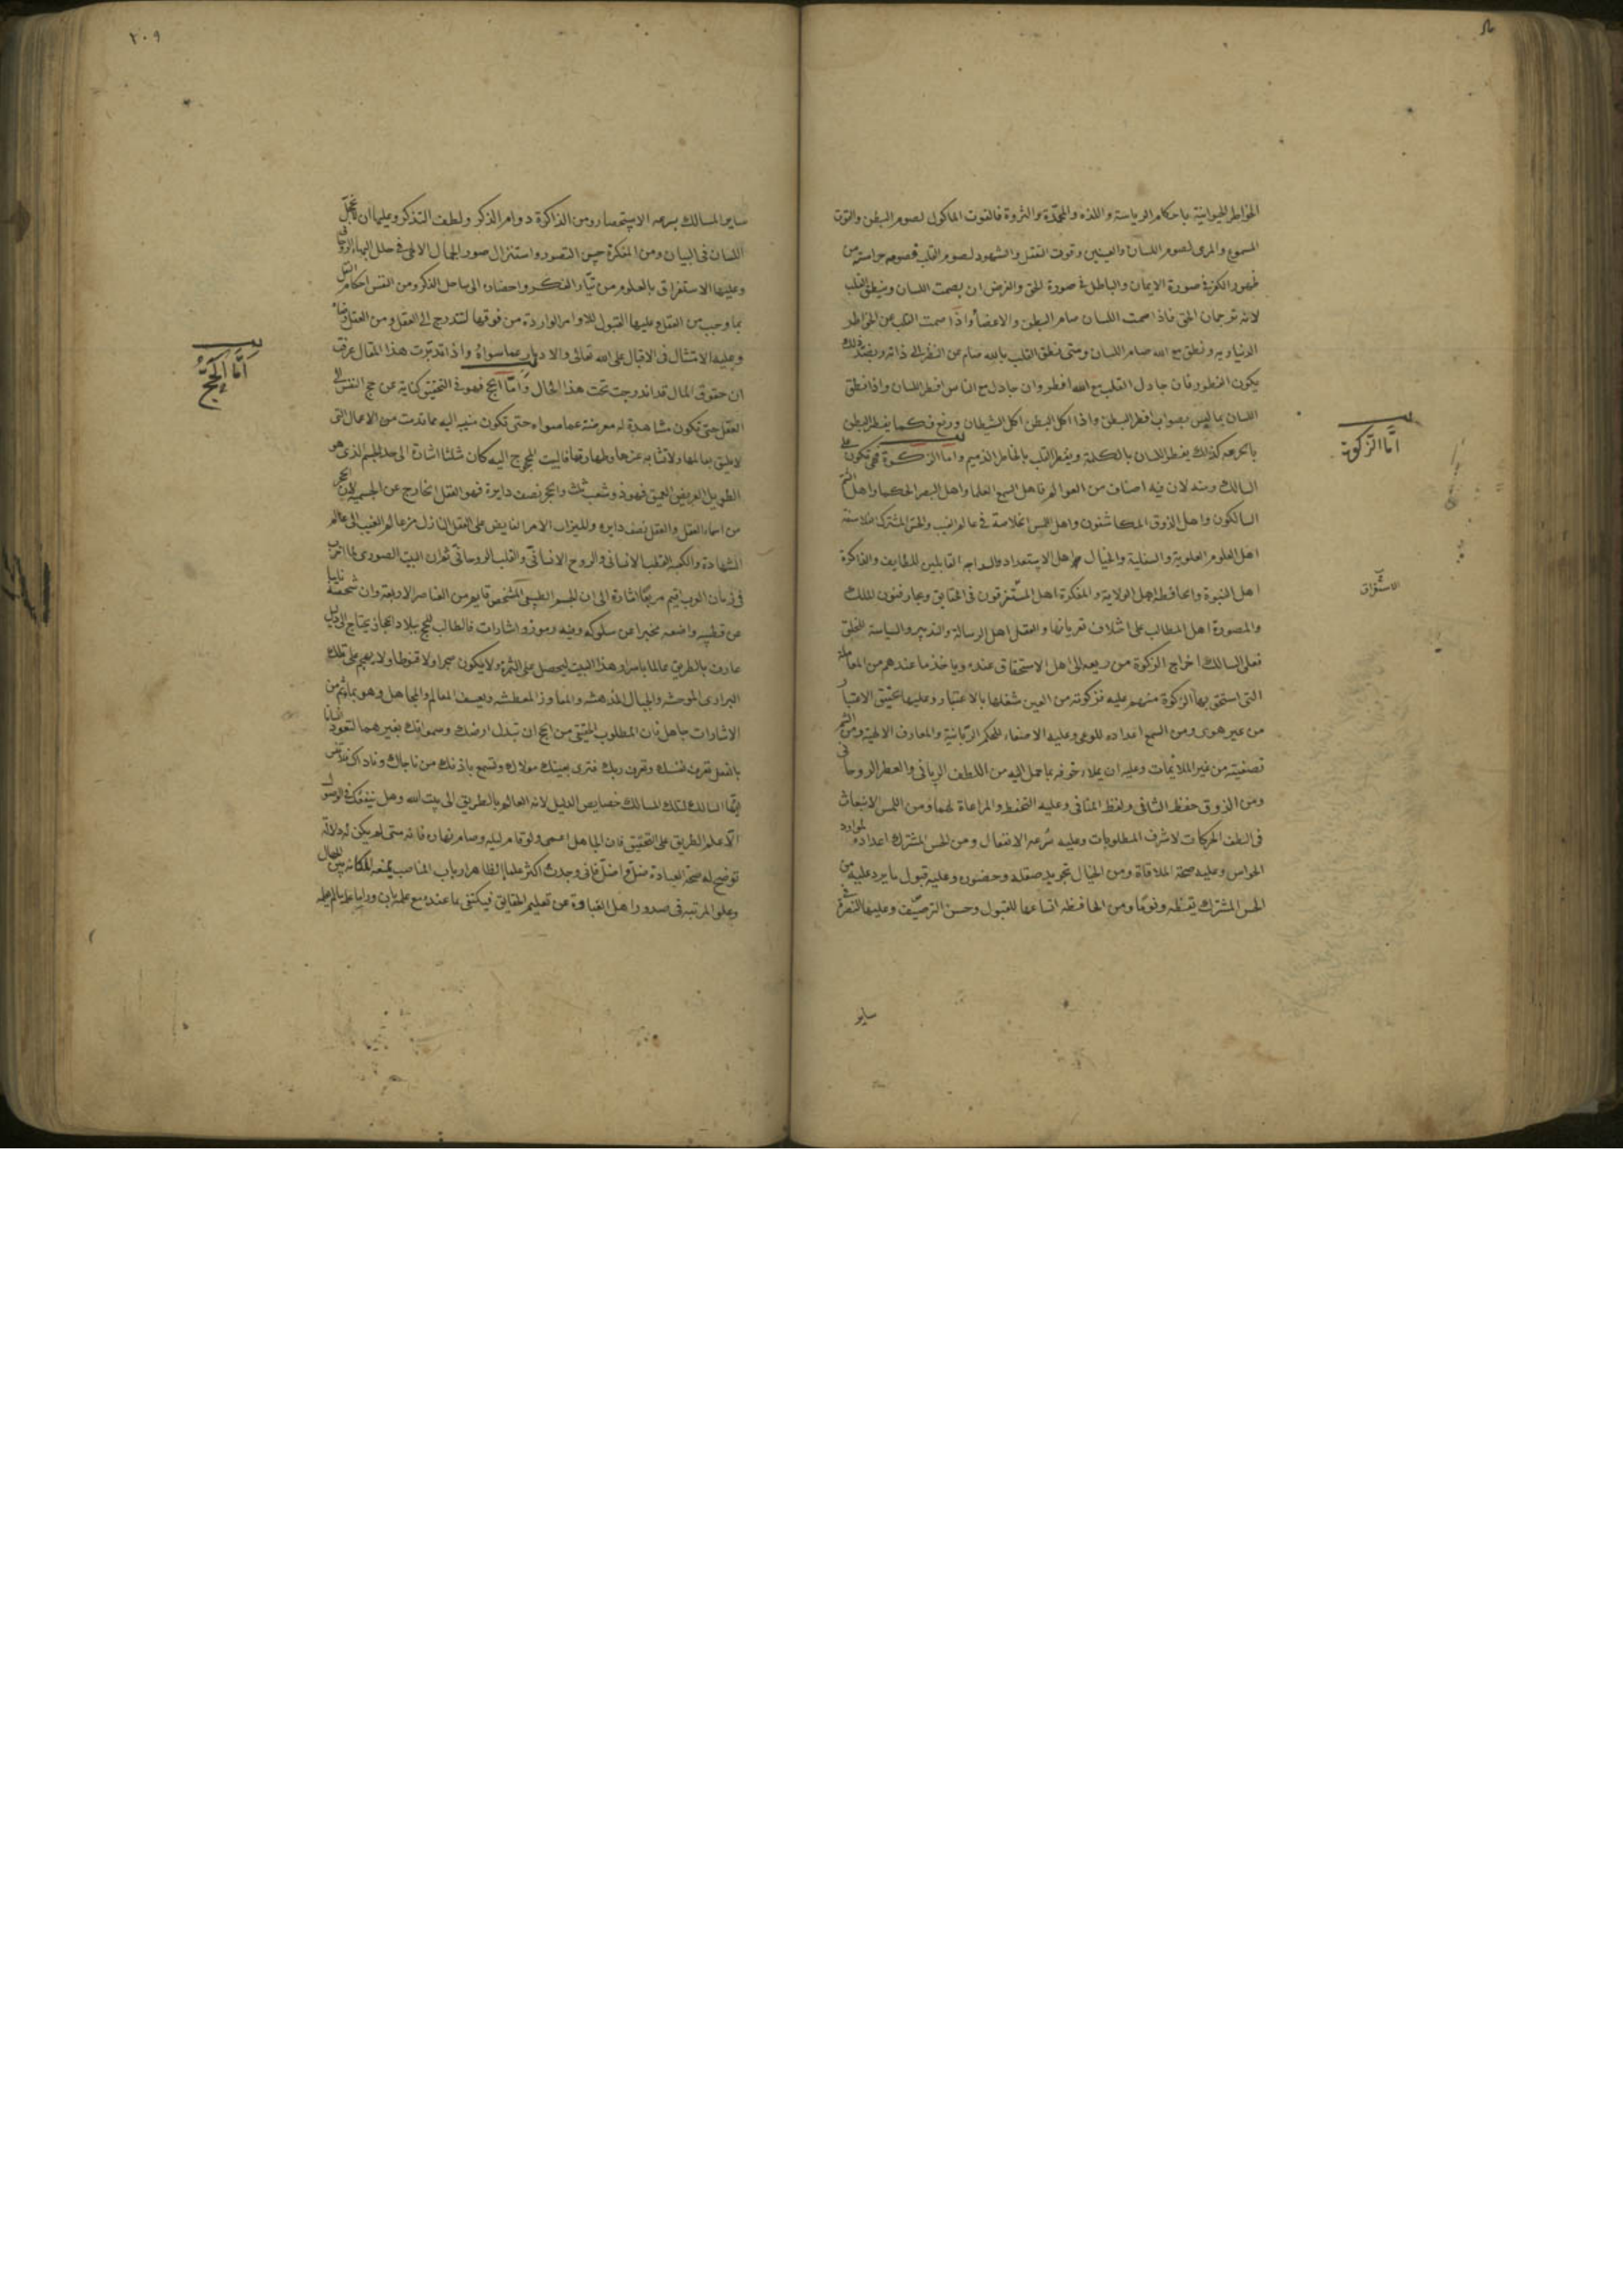 الخواطر الحيوانية باحكام الرياسة واللذه والمحمّدة والثروة فالقوت الماكول لصوم البطن والقوت
المسموع والمرى لصوم اللسان والعينين وقوت العقل والشهود لصوم القلب فصومه حراسته من
ظهور الكفر فى صورة الايمان والباطل فى صورة الحق والغرض ان يصمت اللسان وينطق القلب
لانه ترجمان الحق فاذا صمت اللسان صام البطن والاعضأ واذا صمت القلب عن الخواطر
الدنياويه ونطق مع الله صام اللسان ومتى نطق القلب بالله صام عن النظر الى ذاته وبضد ذلك
يكون الفطور فان جادل القلب مع الله افطر وان جادل مع الناس افطر اللسان واذا نطق
اللسان بما ليس بصواب افطر البطن واذا اكل البطن اكل الشيطان ورتع فكما يفطر البطن
بالجرعه كذلك يفطر اللسان بالكلمة ويفطر القلب بالخاطر الذميم واما الزكوة فهى تكون على
السالك ومنه لان فيه اصناف من العوالم فاهل السمع العلما واهل البصر الحكما واهل الشم
السالكون واهل الذوق المكاشفون واهل اللمس الخلاصة فى عالم الغيب والحس المشترك الفلاسفة
اهل العلوم العلوية والسفلية والخيال اهل الاستعداد القابلين للطايف والذاكرة
اهل النبوة والحافظه اهل الولاية والمفكرة اهل المستغرقون فى الحقايق وعجاز فنون الملك
والمصورة اهل المطالب على اختلاف والعقل اهل الرسالة والتدبير والسياسة للخلق
فعلى السالك اخراج الزكوة من الى اهل الاستحقاق عنده وياخذ ما عندهم من المعاملة
التى استحق بها الزكوة منهم عليه فزكوته من العين شغلها بالاعتبار وعليها تحقيق الاعتبار
من غير هوى ومن السمع اعداده للوعى وعليه الاصغاء للحكم الربانية والمعارف الالهية ومن الشم
تصفيته من غير الملائمات وعليه ان يملاء جوفه بما حمل اليه من اللطف الربانى والعطر الروحانى
ومن الذوق حفظ الشافى ولفظ المنافى وعليه التحفظ والمراعاة لهما ومن اللمس الانبعاث
فى الطف الحركات لاشرف المطلوبات وعليه سرعه الانفعال ومن الحس المشترك اعداده لموارد
الحواس وعليه صحة الملاقاة ومن الخيال تجويد صقله وحضوره وعليه قبول ما يرد عليه من
الحس المشترك يقظه ونومًا ومن الحافظه اتساعها للقبول وحسن الترصيف وعليها التصرف فى
ساير
اما الزكوة
الاستغراق
٢٠٩
ساير المسالك بسرعه الاستحضار ومن الذاكرة دوام الذكر ولطف التذكر وعليها ان تحمل
اللسان فى البيان ومن المفكرة حسن التصور واستنزال صور الجمال الالهى فى حلل البهاء الروحانى
وعليها الاستغراق بالعلوم من تيّار الفكر واحضاره الى ساحل الذكر ومن النفس احكام
بما وجب من العقل وعليها القبول للاوامر الواردة من فوقها لتدرج الى العقل ومن العقل
وعليه الامتثال فى الاقبال على الله تعالى والادبار عما سواه واذا تدبّرت هذا المقال عرفت
ان حقوق المال قد اندرجت تحت هذا الحال واما الحج فهو فى التحقيق كناية عن حج النفس الى
العقل حتى تكون مشاهدة له معرضة عما سواه حتى تكون منيبه اليه مما قدمت من الاعمال التى
لا تليق بعالمها ولا تشابه عزها وطهارتها فالبيت المحجوج اليه كان مثلثا اشارة الى حد الجسم الذى هو
الطويل العريض العميق فهو ذو شعب ثلث والحجر نصف دايرة فهو العقل الخارج عن الجسمية لان الحجر
من اسماء العقل والعقل نصف دايره والميزاب الامر الفايض على العقل النازل من عالم الغيب الى عالم
الشهادة والكعبه القلب الانسانى والروح الانسانى والقلب الروحانى ثم ان البيت الصورى لما اخرب
فى زمان العرب اقيم مربعًا اشارة الى ان الجسم الطبيعى الشخصى قايم من العناصر الاربعة وان شخصه نايبا
عن قطبيه واضعه مخبرا عن سلوكه وفيه رموز واشارات فالطالب للحج ببلاد الحجاز يحتاج الى دليل
عارف بالطريق عالما باسرار هذا البيت ليحصل على الثمرة ولا يكون ولا قنوطا ولا يهجم على تلك
البرارى الموحشه والجبال المدهشه والمفاوز المعطشه ويعسف المعالم والمجاهل وهو بما ثم من
الاشارات جاهل فان المطلوب الحقيقى من الحج ان تبدل ارضك وسمواتك بغيرهما لتعود انسانا
بالفعل تعرف نفسك وتعرف ربك فترى بعينك مولاك وتسمع باذنك من ناجاك وناداك
ايها السالك لتلك المسالك خصايص الدليل لانه العالم بالطريق الى بيت الله وهل ينفعك فى الوصول
الا علم الطريق على التحقيق فان الجاهل اعمى ولو قام ليله وصام نهاره فانه متى لم يكن له دلالة
توضح له صحة العبادة ضل واضل فانى وجدت اكثر علما الظاهر ارباب المناصب يمنعه المكانه بين الجهال
وعلو المرتبه فى صدور اهل الغباوة عن تعليم الحقايق فيكتفى بما عنده مع علمه بان وراءه علما لم يعلمه
اما الحج